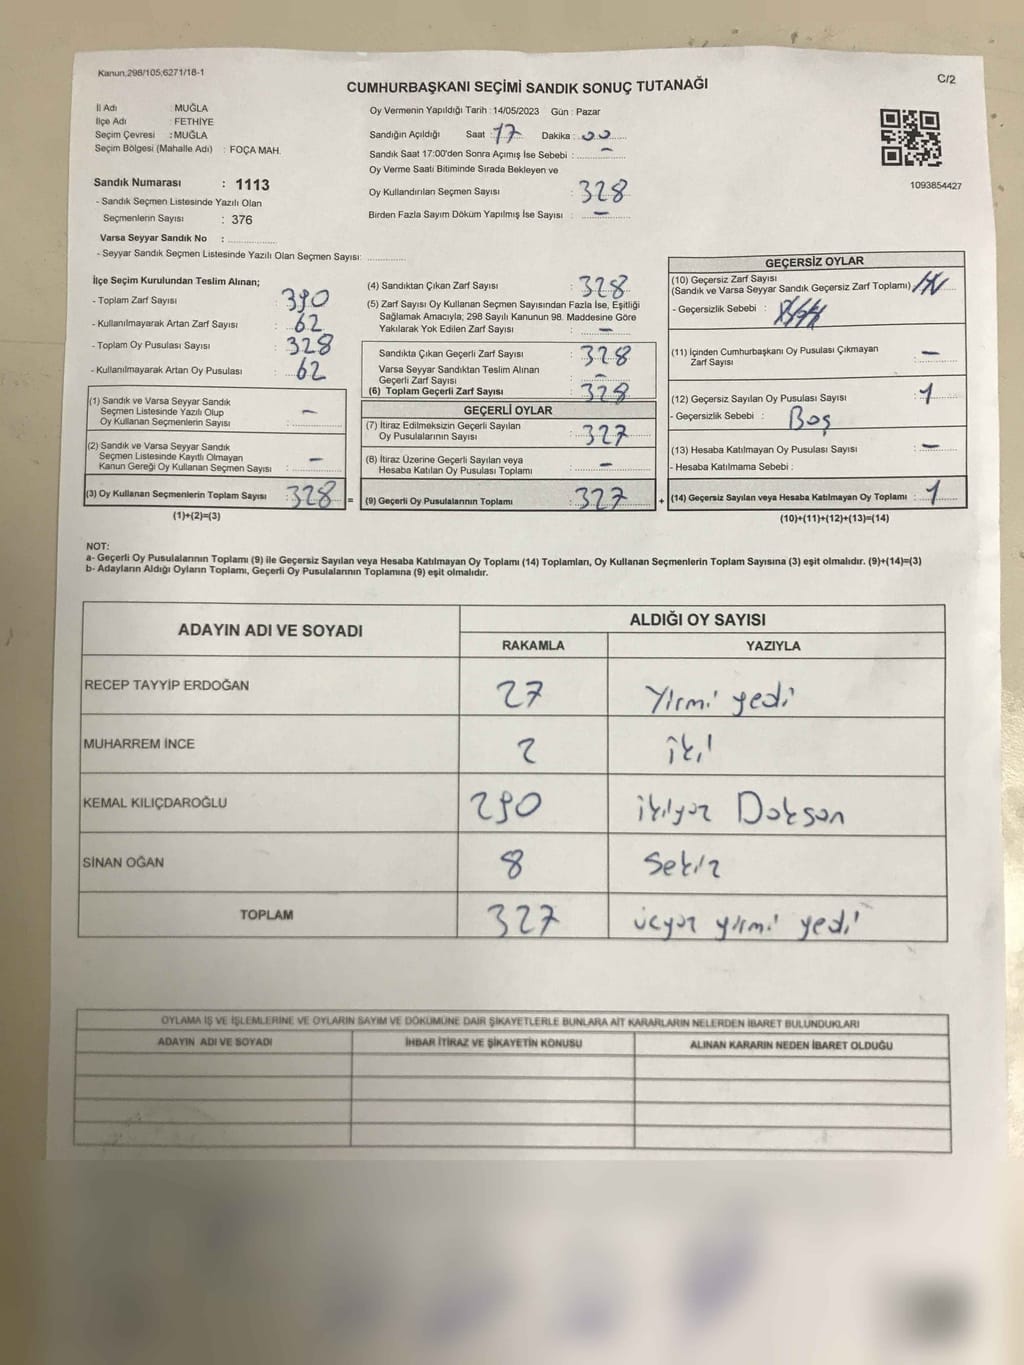 Kanun,298/105;6271/18-1
C/2
CUMHURBAŞKANI SEÇİMİ SANDIK SONUÇ TUTANAĞI
İl Adı : MUĞLA
İlçe Adı : FETHİYE
Seçim Çevresi : MUĞLA
Seçim Bölgesi (Mahalle Adı) : FOÇA MAH.
Sandık Numarası : 1113
- Sandık Seçmen Listesinde Yazılı Olan
Seçmenlerin Sayısı : 376
Varsa Seyyar Sandık No : ...............
- Seyyar Sandık Seçmen Listesinde Yazılı Olan Seçmen Sayısı: ............
Oy Vermenin Yapıldığı Tarih : 14/05/2023 Gün : Pazar
Sandığın Açıldığı Saat : 17 Dakika : 00
Sandık Saat 17:00'den Sonra Açımış İse Sebebi : -
Oy Verme Saati Bitiminde Sırada Bekleyen ve
Oy Kullandırılan Seçmen Sayısı : 328
Birden Fazla Sayım Döküm Yapılmış İse Sayısı : -
1093854427
İlçe Seçim Kurulundan Teslim Alınan;
- Toplam Zarf Sayısı : 390
- Kullanılmayarak Artan Zarf Sayısı : 62
- Toplam Oy Pusulası Sayısı : 328
- Kullanılmayarak Artan Oy Pusulası : 62
(1) Sandık ve Varsa Seyyar Sandık
Seçmen Listesinde Yazılı Olup
Oy Kullanan Seçmenlerin Sayısı : -
(2) Sandık ve Varsa Seyyar Sandık
Seçmen Listesinde Kayıtlı Olmayan
Kanun Gereği Oy Kullanan Seçmen Sayısı : -
(3) Oy Kullanan Seçmenlerin Toplam Sayısı : 328 =
(1)+(2)=(3)
(4) Sandıktan Çıkan Zarf Sayısı : 328
(5) Zarf Sayısı Oy Kullanan Seçmen Sayısından Fazla İse, Eşitliği
Sağlamak Amacıyla; 298 Sayılı Kanunun 98. Maddesine Göre
Yakılarak Yok Edilen Zarf Sayısı : -
Sandıkta Çıkan Geçerli Zarf Sayısı : 328
Varsa Seyyar Sandıktan Teslim Alınan
Geçerli Zarf Sayısı : -
(6) Toplam Geçerli Zarf Sayısı : 328
GEÇERLİ OYLAR
(7) İtiraz Edilmeksizin Geçerli Sayılan
Oy Pusulalarının Sayısı : 327
(8) İtiraz Üzerine Geçerli Sayılan veya
Hesaba Katılan Oy Pusulası Toplamı : -
(9) Geçerli Oy Pusulalarının Toplamı : 327 +
GEÇERSİZ OYLAR
(10) Geçersiz Zarf Sayısı
(Sandık ve Varsa Seyyar Sandık Geçersiz Zarf Toplamı)
- Geçersizlik Sebebi :
(11) İçinden Cumhurbaşkanı Oy Pusulası Çıkmayan
Zarf Sayısı : -
(12) Geçersiz Sayılan Oy Pusulası Sayısı : 1
- Geçersizlik Sebebi : Boş
(13) Hesaba Katılmayan Oy Pusulası Sayısı : -
- Hesaba Katılmama Sebebi :
(14) Geçersiz Sayılan veya Hesaba Katılmayan Oy Toplamı : 1
(10)+(11)+(12)+(13)=(14)
NOT:
a- Geçerli Oy Pusulalarının Toplamı (9) ile Geçersiz Sayılan veya Hesaba Katılmayan Oy Toplamı (14) Toplamları, Oy Kullanan Seçmenlerin Toplam Sayısına (3) eşit olmalıdır. (9)+(14)=(3)
b- Adayların Aldığı Oyların Toplamı, Geçerli Oy Pusulalarının Toplamına (9) eşit olmalıdır.
ADAYIN ADI VE SOYADI
ALDIĞI OY SAYISI
RAKAMLA YAZIYLA
RECEP TAYYİP ERDOĞAN 27 Yirmi yedi
MUHARREM İNCE 2 iki
KEMAL KILIÇDAROĞLU 290 ikiyüz Doksan
SİNAN OĞAN 8 Sekiz
TOPLAM 327 üçyüz yirmi yedi
OYLAMA İŞ VE İŞLEMLERİNE VE OYLARIN SAYIM VE DÖKÜMÜNE DAİR ŞİKAYETLERLE BUNLARA AİT KARARLARIN NELERDEN İBARET BULUNDUKLARI
ADAYIN ADI VE SOYADI İHBAR İTİRAZ VE ŞİKAYETİN KONUSU ALINAN KARARIN NEDEN İBARET OLDUĞU